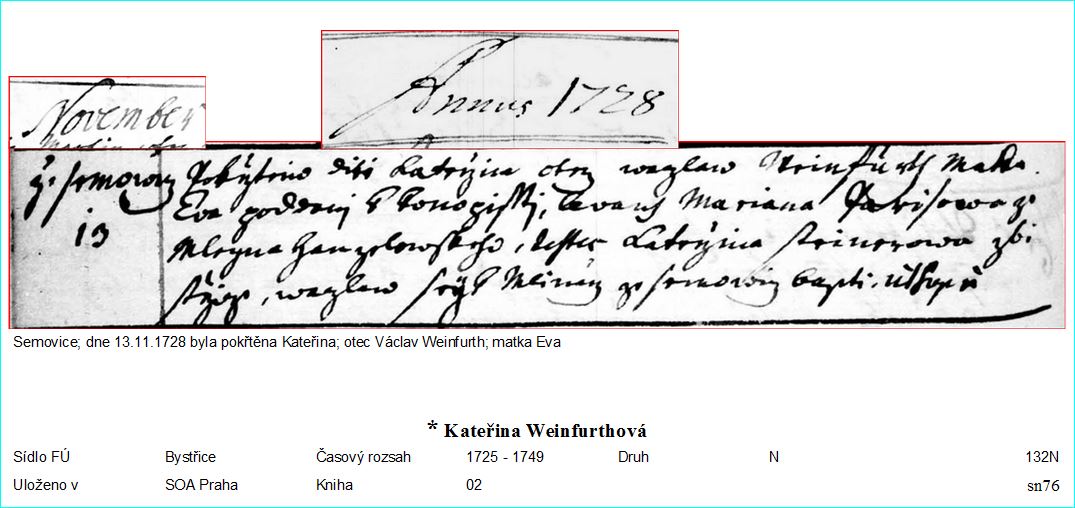 Annus 1728
November
z semowicz
13
Pokřtěno dítě Kateřina otec waczlaw Weinfurth Matka
Eva poddaní k konopissti, levans Mariana
Mleyna testes Kateřina steinerowa z bi
střice, waczlaw Mlinář ze semowicz bapti. ut supra
Semovice; dne 13.11.1728 byla pokřtěna Kateřina; otec Václav Weinfurth; matka Eva
* Kateřina Weinfurthová
Sídlo FÚ Bystřice Časový rozsah 1725 - 1749 Druh N 132N
Uloženo v SOA Praha Kniha 02 sn76